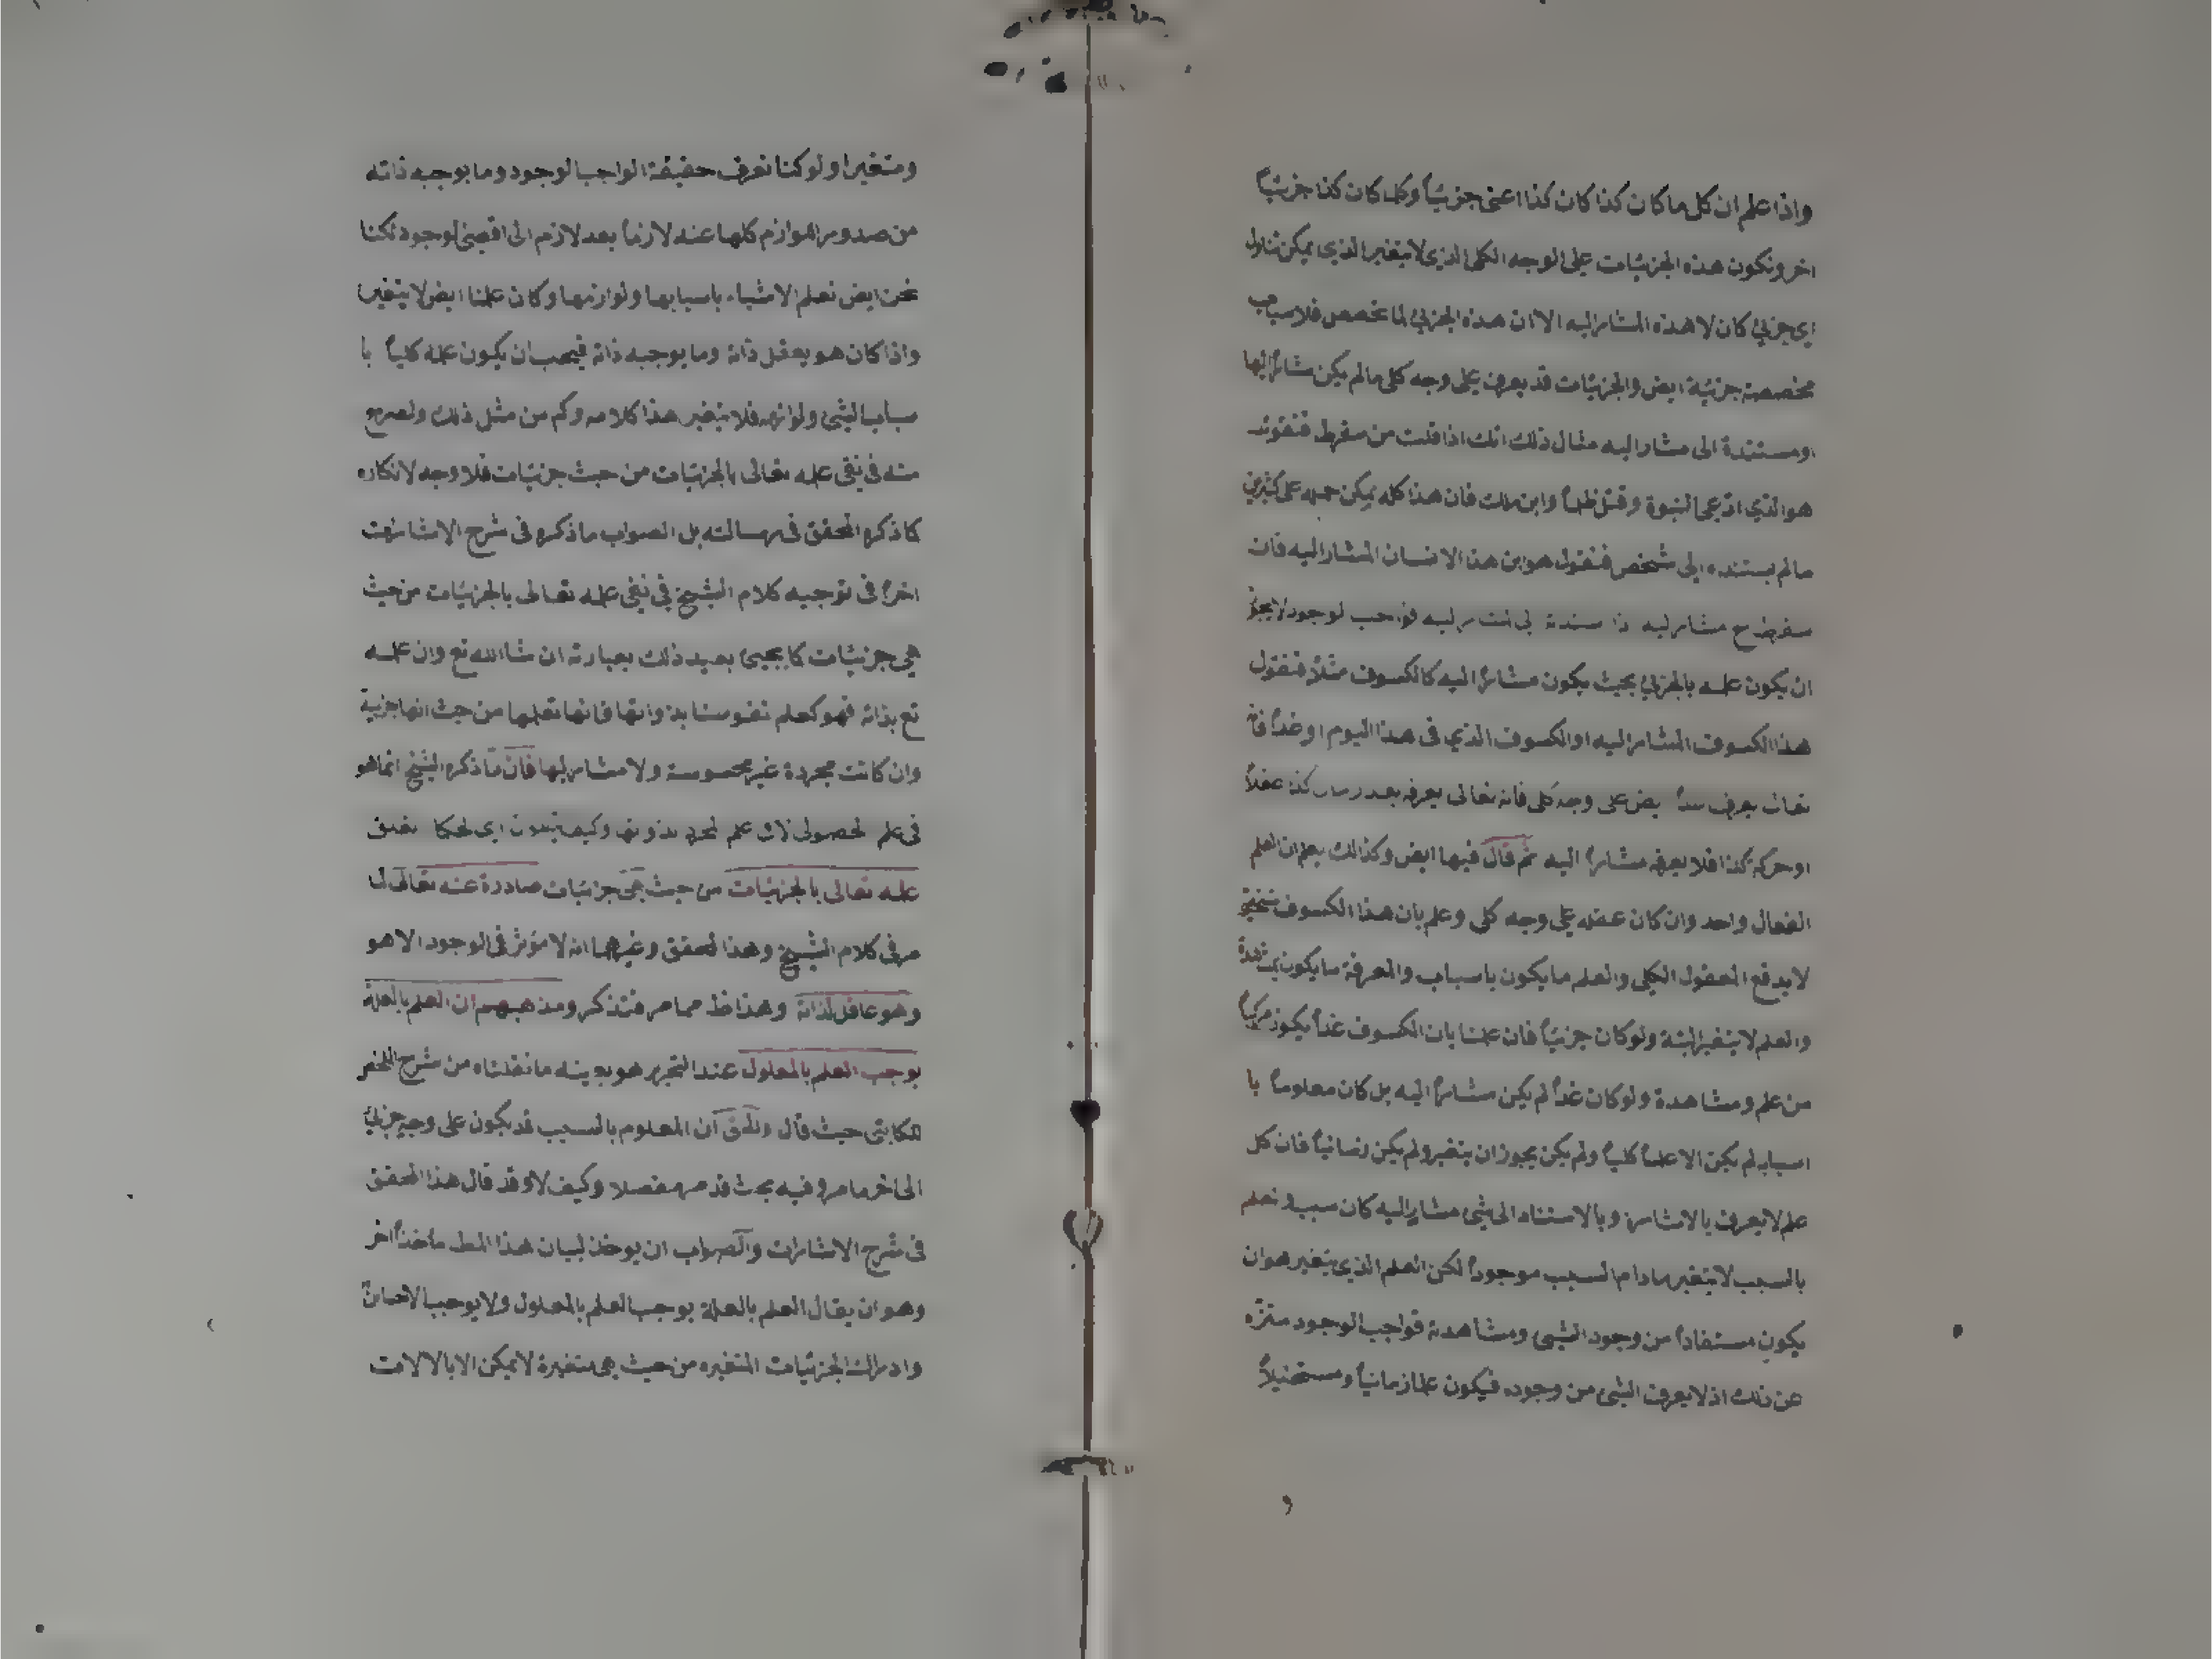 واذا علم ان كل ما كان كذا كان كذا اعنى جزئيا وكلما كان كذا جزئيا
اخر وتكون هذه الجزئيات على الوجه الكلى الذى لا يتغير الذى يمكن تناول
اى جزئى كان لا هذه المشار اليه الا ان هذه الجزئى لما تخصص فلاسباب
مخصصة جزئية ايض والجزئيات قد يعرف على وجه كلى ما لم يكن مشارا اليها
او مستندة الى مشار اليه مثال ذلك انك اذا قلت من سقراط فتقول
هو الذى ادعى النبوة وقتل ظلما وابن ملك فان هذا كله يمكن حمله على كثيرين
ما لم يستنده الى شخص فتقول هو ابن هذا الانسان المشار اليه فان
سقراط ح مشار اليه لوجود لا يجوز
ان يكون علمه بالجزئى بحيث يكون مشارا اليه كالكسوف مثلا فتقول
هذا الكسوف المشار اليه او الكسوف الذى فى هذا اليوم او غدا فانه
تعالى يعرف على وجه كلى فانه تعالى يعرفه بعد زمان كذا عقلا
او حركة كذا فلا يعرفه مشارا اليه ثم قال فيها ايض وكذلك يعلم ان العلم
الفعال واحد وان كان عقله على وجه كلى وعلم بان هذا الكسوف شخصى
لا يدفع المعقول الكلى والعلم ما يكون باسباب والمعرفة ما يكون بمشاهدة
والعلم لا يتغير البتة ولو كان جزئيا فان علمنا بان الكسوف غدا يكون مركبا
من علم ومشاهدة ولو كان غدا لم يكن مشارا اليه بل كان معلوما با
اسبابه لم يكن الا علما كليا ولم يكن يجوز ان يتغير ولم يكن زمانيا فان كل
علم لا يعرف بالاشارة وبالاستناد الى شى مشار اليه كان بسبب والعلم
بالسبب لا يتغير ما دام السبب موجودا لكن العلم الذى يتغير هو ان
يكون مستفادا من وجود الشى ومشاهدته فواجب الوجود منزه
عن ذلك اذ لا يعرف الشى من وجوده فيكون علما زمانيا ومستحيلا
ومتغيرا ولو كنا نعرف حقيقة الواجب الوجود وما يوجبه ذاته
من صدور اللوازم كلها عنه لازما بعد لازم الى اقصى الوجود لكنا
نحن ايض نعلم الاشياء باسبابها ولوازمها وكان علمنا ايض لا يتغير
واذا كان هو يعقل ذاته وما يوجبه ذاته فيجب ان يكون علمه كليا با
سباب الشى ولوازمه فلا يتغير هذا كلامه وكم من مثل ذلك ولصرح
منه فى نفى علمه تعالى بالجزئيات من حيث جزئيات فلا وجه لانكاره
كما ذكره المحقق فى رسالته بل الصواب ما ذكره فى شرح الاشارات
اخرا فى توجيه كلام الشيخ فى نفى علمه تعالى بالجزئيات من حيث
هى جزئيات كما يجيئ بعيد ذلك بعبارته ان شاالله تع وان علمه
تع بذاته فهو كعلم نفوسنا بذواتها فانها تعلمها من حيث انها جزئية
وان كانت مجردة غير محسوسة ولا مشار اليها فان ما ذكره الشيخ انما هو
فى علم الحصولى لا فى علم المجرد بذواتها وكيف اى الحكما
علمه تعالى بالجزئيات من حيث هى جزئيات صادرة عنه تعالى لما
مر فى كلام الشيخ وهذا المحقق وغيرهما انه لا مؤثر فى الوجود الا هو
وهو عاقل لذاته وهذا ظ مما مر فتذكر ومذهبهم ان العلم بالعلة
يوجب العلم بالمعلول عند التحرير هو بعينه ما نقلناه من شرح الملخص
للكاتبى حيث قال والحق ان المعلوم بالسبب قد يكون على وجه جزئى
الى اخر ما مر وفيه بحث قد مر مفصلا وكيف لا وقد قال هذا المحقق
فى شرح الاشارات والصواب ان يوخذ لبيان هذا المط ماخذا اخر
وهو ان يقال العلم بالعلة يوجب العلم بالمعلول ولا يوجب الاحساس
وادراك الجزئيات المتغيره من حيث هى متغيرة لا يمكن الا بالالات